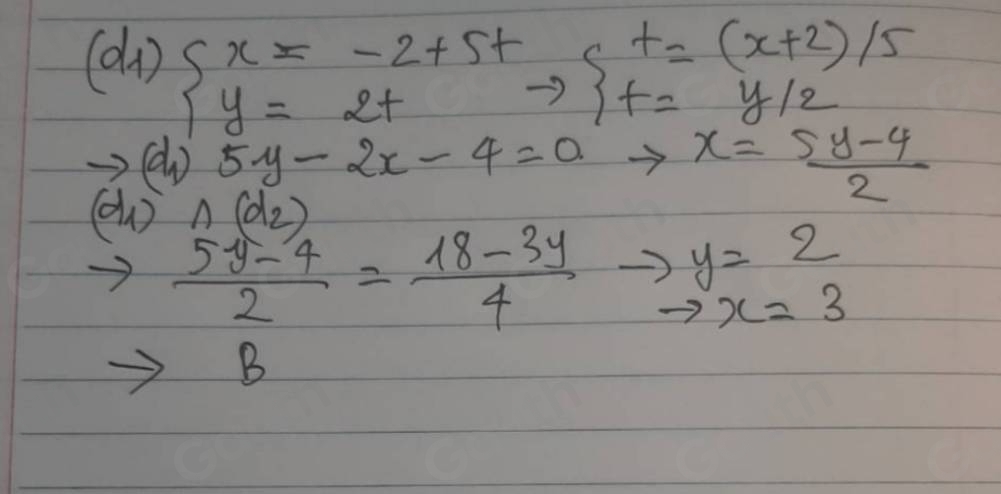 (d1) { x = -2+5t { t = (x+2)/5
{ y = 2t → { t = y/2
→ (d1) 5y - 2x - 4 = 0 → x = (5y-4)/2
(d1) ∧ (d2)
→ (5y-4)/2 = (18-3y)/4 → y = 2
→ x = 3
→ B